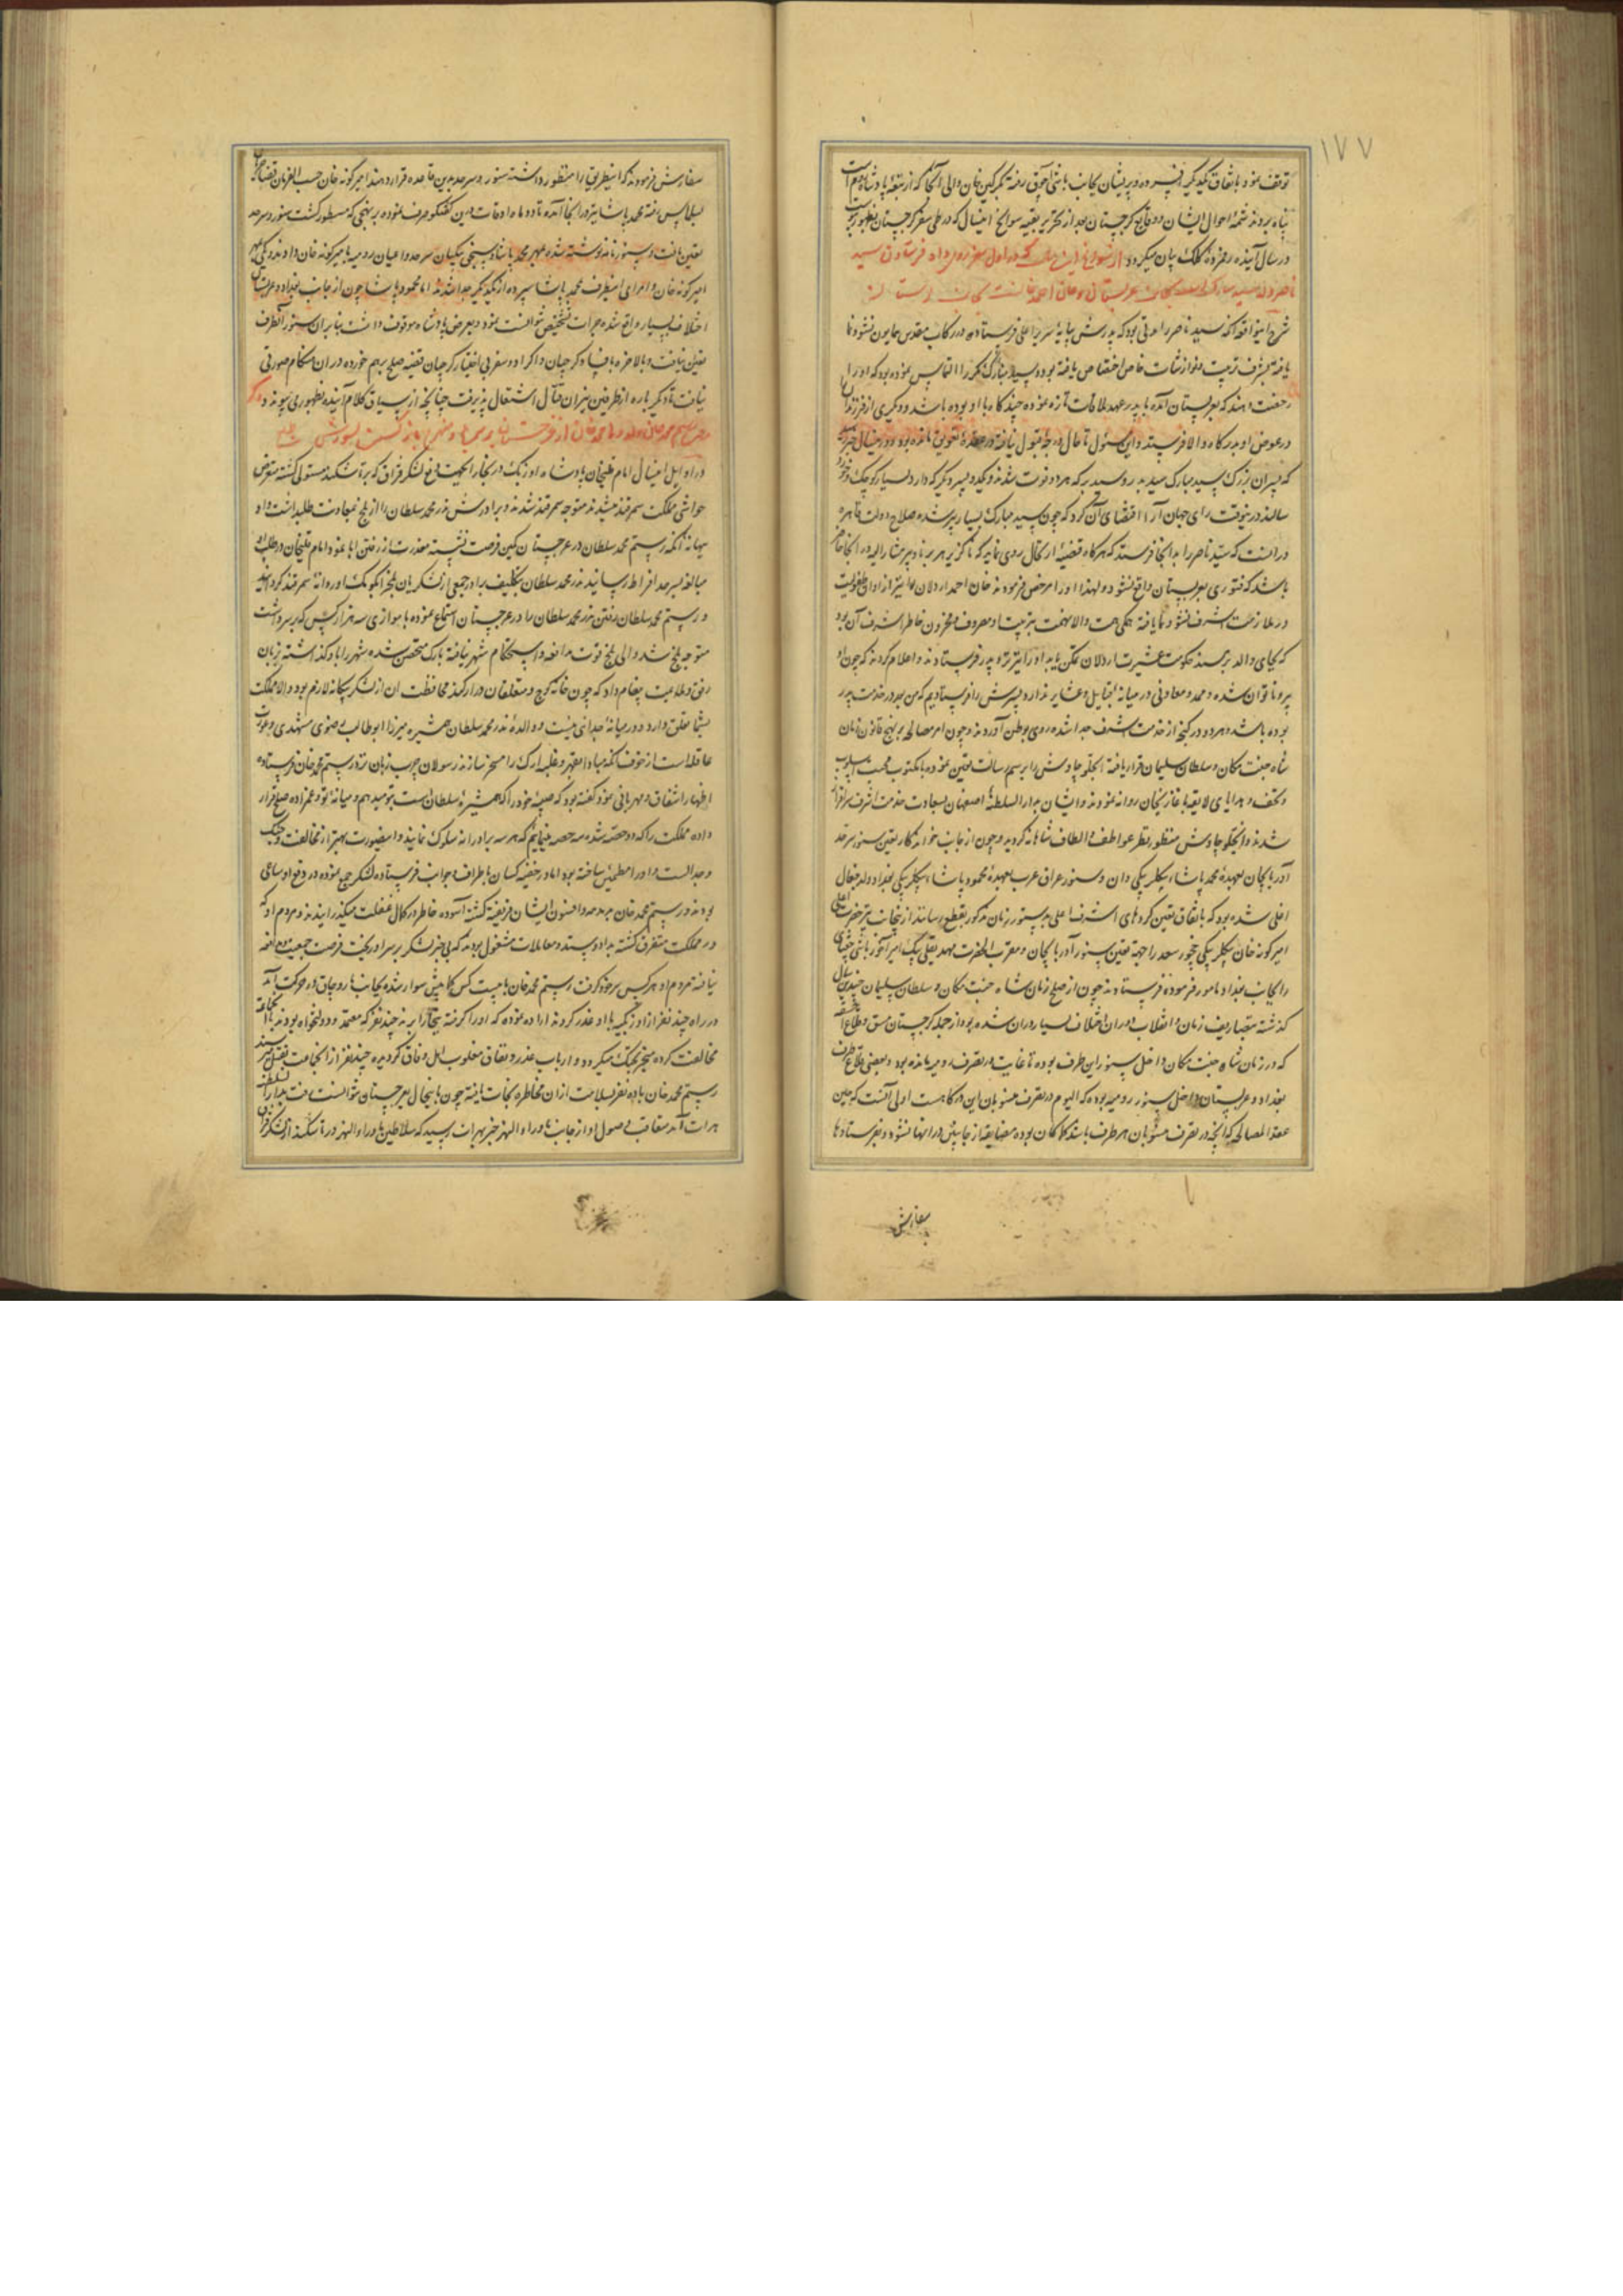 ۱۷۷
توقف نمود باتفاق یکدیگر افسرده و پریشان بجانب باشی آچوق رفته بگرگین خان والی آنجا که از تبعهٔ پادشاه روم است
پناه بردند شمهٔ احوال ایشان و وقایع گرجستان بعد از تحریر بقیه سوانح امسال که در طی سفر گرجستان بظهور
در سال آینده رقمزدهٔ کلک بیان میگردد از سوانح این سال که در اول سفر روی داد فرستادن سید
ناصر ولد سید مبارک بجانب عربستان و خان احمد خان بجانب
شرح این واقعه آنکه سید ناصر را مدتی بود که پدرش بپایهٔ سریر اعلی فرستاده در رکاب مقدس همایون نشو و نما
یافته بشرف تربیت و نوازشات خاص اختصاص یافته بود و سید مبارک مکرر التماس نموده بود که او را
رخصت دهند که بعربستان آمده با پدر عهد ملاقات تازه نموده چند گاه با او بوده باشد و دیگری از فرزندان
در عوض او بدرگاه والا فرستد و این مسئول تا حال درجهٔ قبول نیافته در عقدهٔ تعویق مانده بود و در اینسال خبر
که پسران بزرگ سید مبارک سید بدر و سید برکه هر دو فوت شدند و یکدو پسر دیگر که دارد بسیار کوچک و خورد
سالند درینوقت رای جهان آرا اقتضای آن کرد که چون سید مبارک بسیار پیر شده صلاح دولت قاهره
در آنست که سید ناصر را بدانجا فرستند که هرگاه قضیهٔ ارتحال روی نماید که ناگزیر هر برنا و پیر مشار الیه در آنجا حاضر
باشد که فتوری بعربستان واقع نشود و لهذا او را مرخص فرمودند خان احمد اردلان را نیز از اوان طفولیت
در ملازمت اشرف نشو و نما یافته همگی همت والا نهمت بتربیت او مصروف و مخزون خاطر اشرف آن بود
که بجای والد بر مسند حکومت عشیرت اردلان تمکن یابد او را نیز نزد پدر فرستادند و اعلام کردند که چون او
پیر و ناتوان شده و ممد و معاونی در میانهٔ قبایل و عشایر ندارد پسرش را فرستادیم که من بعد در خدمت پدر
بوده باشد و هر دو در گنجه از خدمت اشرف جدا شده روی بوطن آوردند و چون امر مصالحه بر نهج قانون زمان
شاه جنت مکان و سلطان سلیمان قرار یافته انجلو چاوش را برسم رسالت تعیین نموده با مکتوب محبت اسلوب
و تحف و هدایای لایقه با غازیخان روانه نمودند و ایشان بدار السلطنهٔ اصفهان بسعادت خدمت اشرف سرافراز
شدند و انجکلو چاوش منظور نظر عواطف و الطاف شاهانه گردید و چون از جانب خواندگار تعیین سنور سرحد
آذربایجان بعهدهٔ محمد پاشا بیگلربیگی وان و سنور عراق عرب بعهدهٔ محمود پاشا بیگلربیگی بغداد ولد جغال
اغلی شده بود که باتفاق تعیین کرده‌های اشرف اعلی بدستور زمان مذکور بقطع رسانند از ینجانب نیز حضرت اعلی
امیر گونه خان بیگلربیگی چخور سعد را جهت تعیین سنور آذربایجان و مقرب الحضرت مهدیقلی بیک امیر آخور باشی جغتای
را بجانب بغداد مامور فرموده فرستادند چون از صلح زمان شاه جنت مکان و سلطان سلیمان چندین سال
گذشته بتصاریف زمان و انقلاب دوران اختلاف بسیار در آن شده بود از جمله گرجستان مسق و قلاع اخسقه
که در زمان شاه جنت مکان داخل سنور این طرف بوده تا غایت در تصرف رومیه مانده بود و بعضی قلاع طرف
بغداد و عربستان داخل سنور رومیه بوده که الیوم در تصرف منسوبان این درگاهست اولی آنست که حین
عقد المصالحه که آنچه در تصرف منسوبان هر طرف باشد کما کان بوده مضایقه از جانبین در آنها نشود و بفرستادها
سفارش
سفارش فرمودند که اینطریق را منظور داشته سنور و سرحد بدین قاعده قرار دهند امیر گونه خان حسب الفرمان قضا
بیلماپس رفته محمد پاشا نیز در آنجا آمده تا دو ماه اوقات درین گفتگو صرف نموده بر نهجی که مسطور گشت سنور و سرحد
تعیین یافت و سنور نامه نوشته شده بمهر محمد پاشا و سنجق بیگیان سرحد و اعیان رومیه بامیر گونه خان دادند و یکی بمهر
امیر گونه خان و امرای اینطرف بمحمد پاشا سپرده از یکدیگر جدا شدند اما محمود پاشا چون از جانب بغداد و عربستان
اختلاف بسیار واقع شده جرات تشخیص نتوانست نمود و بعرض پادشاه موقوف داشت بنابرآن سنور آنطرف
تعیین نیافت و بالاخره بافساد گرجیان و اکراد و سفر بی اختیار گرجیان قضیه صلح برهم خورده در آن هنگام صورتی
نیافت تا دیگر باره از طرفین نیران قتال اشتعال پذیرفت چنانچه از سیاق کلام آینده بظهور می پیوندد
رستم محمد خان ولد ولی محمد خان از غرجستان
در اوایل امسال امام قلیخان پادشاه اوزبک در بخارا بجهت دفع لشکر قزاق که بر تاشکند مستولی گشته متعرض
حواشی مملکت سمرقند میشدند متوجه سمرقند شدند و برادرش ندر محمد سلطان را از بلخ بمعاونت طلب داشت و او
بهانه آنکه رستم محمد سلطان در غرجستان بکمین فرصت نشسته معذرت از رفتن ابا نمود و امام قلیخان در طلب او
مبالغه بسرحد افراط رسانید ندر محمد سلطان بتکلیف برادر جمعی از لشکریان بلخ را بکومک او روانه سمرقند گردانید
و رستم محمد سلطان رفتن ندر محمد سلطان را در غرجستان استماع نموده با موازی سه هزار کس که بر سر داشت
متوجه بلخ شد والی بلخ قوت مدافعه و استحکام شهر نیافته بارک متحصن شده شهر را باو گذاشته بزبان
رفق و ملایمت پیغام داد که چون خانه کوچ و متعلقان در ارکند محافظت آن از لشکر بیگانه لازم بود و الا مملکت
بشما تعلق دارد و در میانه جدائی نیست و والدهٔ ندر محمد سلطان همشیره میرزا ابوطالب رضوی مشهدی و عورت
عاقله است از خوف آنکه مبادا بقهر و غلبه ارک را مسخر سازند رسولان چرب زبان نزد رستم محمد خان فرستاده
اظهار اشفاق و مهربانی نمود گفته بود که صبیهٔ خود را که همشیرهٔ سلطان است بتو میدهم و میانهٔ تو و عمزاده صلح قرار
داده مملکت را که دو حصه شده سه حصه مینمایم که هر سه برادرانه سلوک نمایند و اینصورت بهتر از مخالفت و جنگ
و جدالست و او را مطمئن ساخته بود اما در خفیه کسان باطراف و جوانب فرستاده لشکر جمع نموده در دفع او ساعی
بودند و رستم محمد خان بدمدمه و افسون ایشان فریفته گشته آسوده خاطر در کمال غفلت میگذرانیدند و مردم او که
در مملکت متفرق گشته بداد و ستد و معاملات مشغول بودند که بیخبر لشکر بر سر او ریخت فرصت جمعیت و مدافعه
نیافته مردم او هر کس سر خود گرفت رستم محمد خان با بیست کس کمابیش سوار شده بجانب اندخود و جاق در حرکت آمد
در راه چند نفر از اوزبکیه با او غدر کردند اراده نموده که او را گرفته ببخارا برند چند نفر که معتمد و دولتخواه بودند با آنجماعه
مخالفت کرده منجر بجنگ میگردد و ارباب غدر و نفاق مغلوب اهل وفاق گردیده چند نفر از آنجماعت بقتل میرسند
رستم محمد خان با ده نفر بسلامت از آن مخاطره نجات یافته چون با اینحال بغرجستان نتوانست رفت بدار السلطنه
هرات آمد متعاقب وصول او از جانب ماوراء النهر خبر بهرات رسید که سلاطین ماوراء النهر در تاشکند از لشکر قزاق